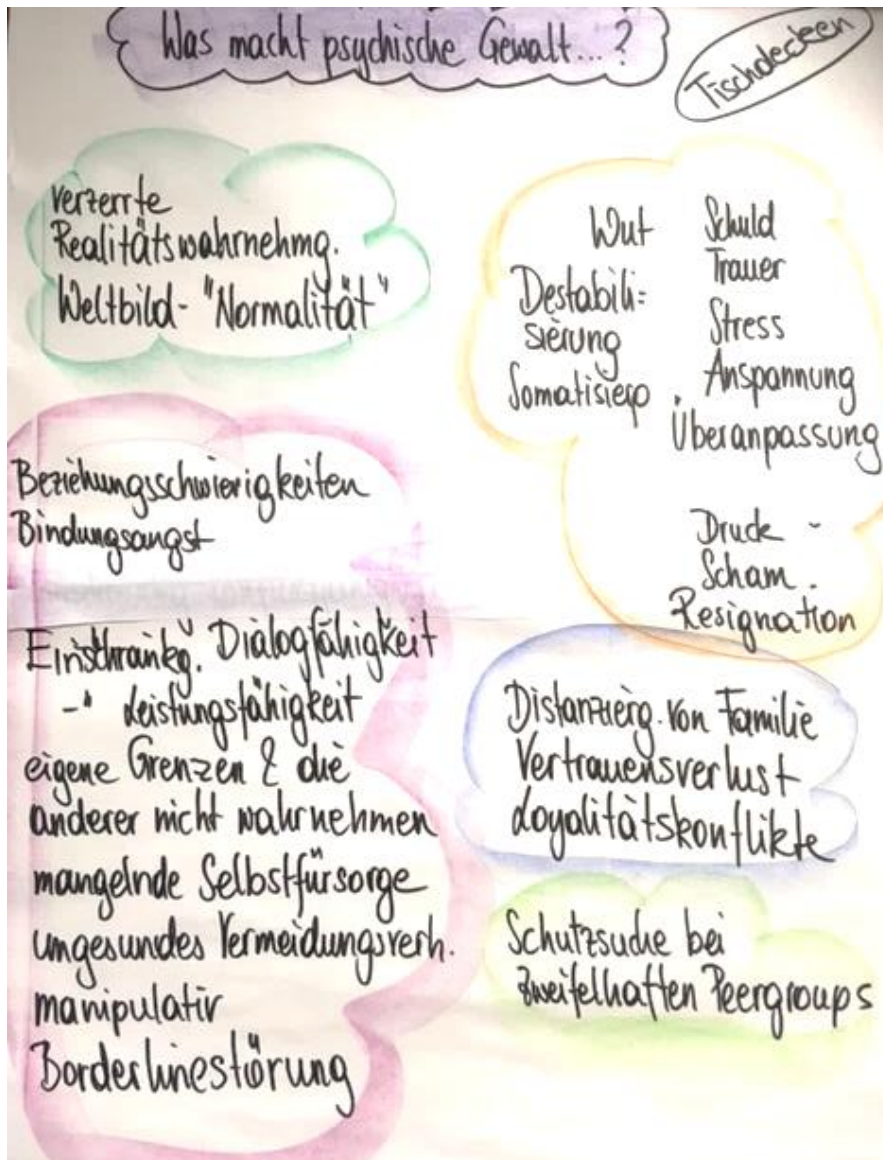 Was macht psychische Gewalt...?
Tischdecken
verzerrte
Realitätswahrnehmg.
Weltbild- "Normalität"
Wut
Destabili=
sierung
Somatisierg.
Schuld
Trauer
Stress
Anspannung
Überanpassung
Druck -
Scham.
Resignation
Beziehungsschwierigkeiten
Bindungsangst
Einschränkg. Dialogfähigkeit
-" Leistungsfähigkeit
eigene Grenzen & die
anderer nicht wahrnehmen
mangelnde Selbstfürsorge
ungesundes Vermeidungsverh.
manipulativ
Borderlinestörung
Distanzierg. von Familie
Vertrauensverlust
Loyalitätskonflikte
Schutzsuche bei
zweifelhaften Peergroups